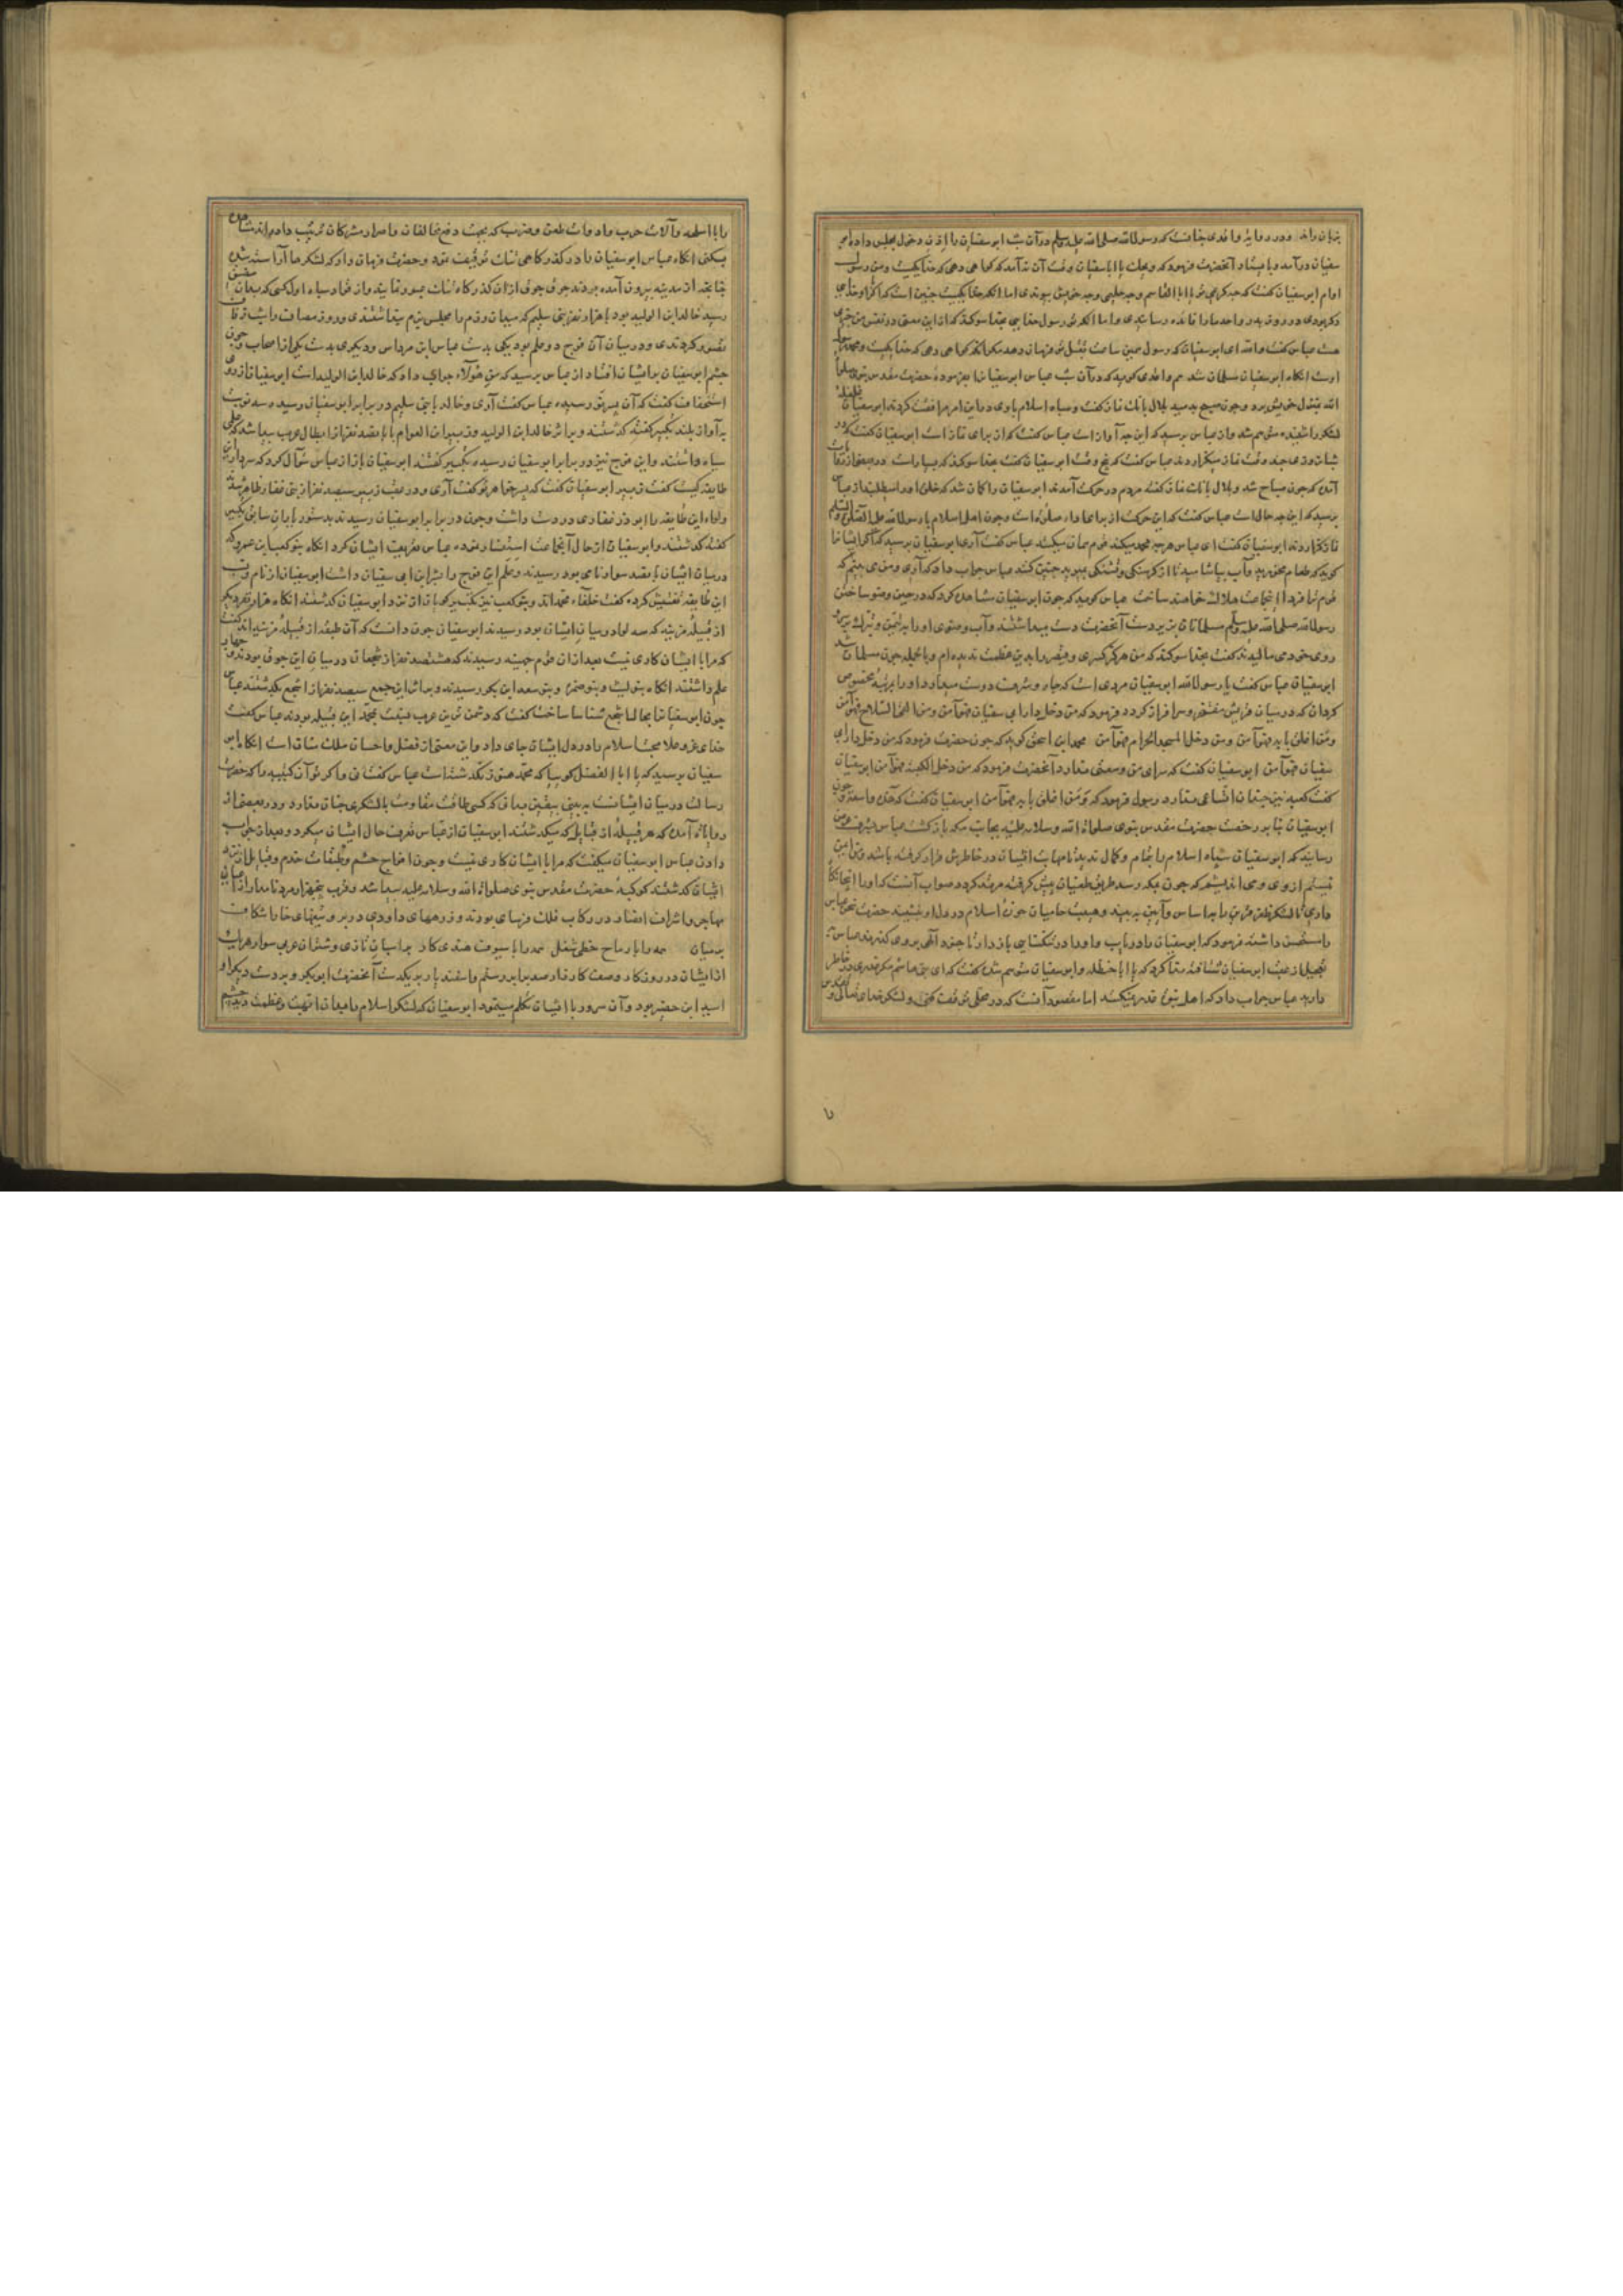 سفیان درآمد و بایستاد آنحضرت فرمود که ویحک یا ابا سفیان وقت آن نه آمد که گواهی دهی که خدا یکیست و من رسول
اوام ابو سفیان گفت که چه کریمی تو یا ابا القاسم و چه حلیمی و چه خویش پیوندی اما آنکه خدا یکیست چنین است که اگر او خدای
عباس گفت والله ای ابو سفیان که رسول همین ساعت بقتل تو فرمان دهد مگر آنکه گواهی دهی که خدا یکیست و محمد رسول
اوست انکاه ابو سفیان مسلمان شد هم واقدی گوید که در آن شب عباس ابو سفیان را بفرموده حضرت مقدس نبوی صلوات
الله بمنزل خویش برد و چون صبح بدمید بلال بانک نماز گفت و سپاه اسلام با وی در این امر موافقت کردند ابو سفیان
لشکر را شنیده متوهم شد و از عباس پرسید که این چه آواز است عباس گفت که از برای نماز است ابو سفیان گفت که در
شبان روزی چند وقت نماز میگزارند عباس گفت که پنج وقت ابو سفیان گفت بخدا سوگند که بسیار است و در بعضی از روایات
آمده که چون صباح شد و بلال بانک نماز گفت مردم در حرکت آمدند ابو سفیان را گمان شد که خلق او را میطلبند از عباس
پرسید که این چه حال است عباس گفت که این حرکت از برای ادای صلوة است و چون اهل اسلام با رسول الله علیه الصلوة والسلم
نماز گزاردند ابو سفیان گفت ای عباس هرچه محمد میکند قوم همان میکنند عباس گفت آری ابو سفیان پرسید که اگر ایشان را
گوید که طعام مخورید و آب میاشامید تا از گرسنگی و تشنگی بمیرید چنین کنند عباس جواب داد که آری و من می بینم که
قوم ترا فردا این جماعت هلاک خواهند ساخت عباس گوید که چون ابو سفیان مشاهده کرد که در حین وضو ساختن
رسول الله صلی الله علیه وسلم مسلمانان زیر دست آنحضرت دست میداشتند و آب وضوی او را به تیمن و تبرک بر
روی خود می مالیدند گفت بخدا سوگند که من هرگز کسری و قیصر را بدین عظمت ندیده ام و بالجمله چون مسلمان شد
ابو سفیان عباس گفت یا رسول الله ابو سفیان مردی است که جاه و شرف دوست میدارد او را بمرتبه مخصوص
گردان که در میان قریش مفتخر و سرافراز گردد فرمود که من دخل دار ابی سفیان فهو آمن و من القی السلاح فهو آمن
و من اغلق بابه فهو آمن و من دخل المسجد الحرام فهو آمن محمد ابن اسحق گوید که چون حضرت فرمود که من دخل دار ابی
سفیان فهو آمن ابو سفیان گفت که سرای من وسعتی ندارد آنحضرت فرمود که من دخل الکعبه فهو آمن ابو سفیان
گفت کعبه نیز چندان اتساعی ندارد رسول فرمود که و من اغلق بابه فهو آمن ابو سفیان گفت که هذه واسعة و چون
ابو سفیان بنا بر رخصت حضرت مقدس نبوی صلوات الله وسلامه علیه بجانب مکه باز گشت عباس بشرف عرض
رسانید که ابو سفیان سپاه اسلام را بتمام و کمال ندیده تا مهابت ایشان در خاطرش قرار گرفته باشد
را مستحسن داشته فرمود که ابو سفیان را دریاب و او را در تنگنایی باز دار تا جنود الهی بر وی گذرند عباس
بتعجیل از عقب ابو سفیان شتافته ندا کرد که یا ابا حنظله و ابو سفیان متوهم شده گفت که ای بنی هاشم مگر غدری در خاطر
دارید عباس جواب داد که اهل نبوت غدر نیکنند اما مقصود آنست که در محلی توقف کنی و لشکر خدای تعالی
را با اسلحه و آلات حرب و ادوات طعن و ضرب که بجهت دفع مخالفان و اصرار مشرکان ترتیب داده اند مشاهده
بکنی انکاه عباس ابو سفیان را در گذرگاهی ثبات توقیف نمود و حضرت فرمان داد که لشکرها آراسته شدن
رسید خالد ابن الولید بود با هزار نفر بنی سلیم که میدان رزم را مجلس بزم
تصور کردندی و در میان آن فوج دو علم بود یکی بدست عباس ابن مرداس و دیگری بدست یکی از اصحاب چون
چشم ابو سفیان بر ایشان افتاد از عباس پرسید که من هؤلاء جواب داد که خالد ابن الولید است ابو سفیان از روی
استخفاف گفت که آن پسر تو رسیده عباس گفت آری و خالد با بنی سلیم در برابر ابو سفیان رسیده سه نوبت
به آواز بلند تکبیر گفته گذشتند و بر اثر خالد ابن الولید زبیر ابن العوام با پانصد نفر از ابطال عرب پیدا شد علمی
سیاه داشتند و این فوج نیز در برابر ابو سفیان رسیده تکبیر گفتند ابو سفیان باز از عباس سؤال کرد که سردار این
طایفه کیست گفت زبیر ابو سفیان گفت که پسر خواهر تو گفت آری و در عقب زبیر سیصد نفر از بنی غفار ظاهر شدند
و لوای این طایفه را ابو ذر غفاری در دست داشت و چون در برابر ابو سفیان رسیدند بدستور یاران سابق تکبیر
گفته گذشتند و ابو سفیان از حال آن جماعت استفسار نموده عباس تعریف ایشان کرد انکاه بنو کعب ابن عمرو که
در میان ایشان پانصد سوار نامی بود رسیدند و علم این فوج را بشر ابن ابی سفیان داشت ابو سفیان از نام و نسب
این طایفه تفتیش کرده گفت خلفاء محمد اند و بنو کعب نیز تکبیر گویان از نزد ابو سفیان گذشتند انکاه هزار نفر دیگر
از قبیله مزینه که سه لوا در میان ایشان بود رسیدند ابو سفیان چون دانست که آن طبقه از قبیله مزینه اند گفت
که مرا با ایشان کاری نیست بعد از آن قوم جهینه رسیدند که هشتصد نفر از شجعان در میان این جوق بودند و چهار
علم داشتند انکاه بنو لیث و بنو ضمره و بنو سعد ابن بکر رسیدند و بر اثر این جمع سیصد نفر از اشجع بگذشتند عباس
چون ابو سفیان را بحال اشجع شناسا ساخت گفت که دشمن ترین عرب نسبت بمحمد این قبیله بودند عباس گفت
خدای عز و علا محبت اسلام را در دل ایشان جای داد و این معنی از فضل و احسان ملک منان است انکاه ابو
سفیان پرسید که یا ابا الفضل گوییا که محمد هنوز نگذشته است عباس گفت نی و اگر تو آن کتیبه را که حضرت
رسالت در میان ایشانست به بینی بیقین بدانی که کسی طاقت مقاومت با لشکری چنان ندارد و در بعضی از
روایات آمده که هر قبیله از قبایل که میگذشتند ابو سفیان از عباس تعریف حال ایشان میکرد و بعد از جواب
دادن عباس ابو سفیان میگفت که مرا با ایشان کاری نیست و چون افواج حشم و طبقات خدم و قبایل
ایشان گذشتند کوکبه حضرت مقدس نبوی صلوات الله وسلامه علیه پیدا شد و قریب پنجهزار مرد نامدار از اعیان
مهاجر و اشراف انصار در رکاب فلک فرسای بودند و زرههای داودی در بر و تیغهای خارا شکاف
بر میان همه را با رماح خطی شغل همه را با سیوف هندی کار بر اسپان تازی و شتران عربی سوار و هر یک
از ایشان در روز کار و وصف کارزار صد برابر رستم و اسفندیار بر یکدست آنحضرت ابو بکر و بر دست دیگر او
اسید ابن حضیر بود و آن سرور با ایشان تکلم مینمود ابو سفیان که لشکر اسلام را بدان ابهت و عظمت دید